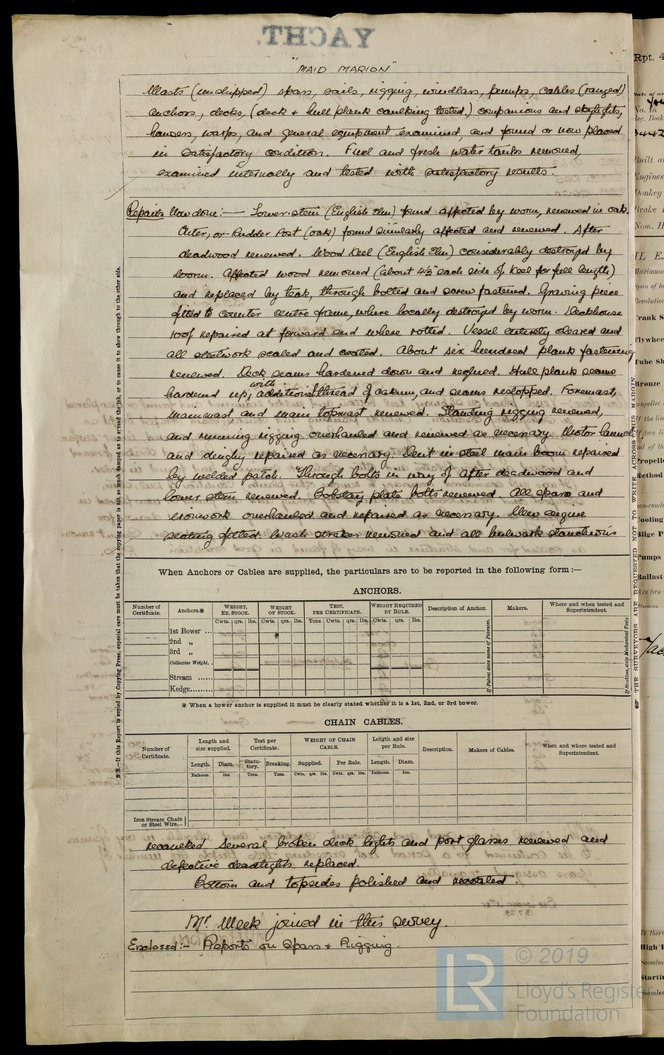 YACHT.
"MAID MARION"
Masts (unshipped) spars, sails, rigging, windlass, pumps, cables (ranged)
anchors, decks, (deck + hull plank caulking tested.) companions and skylights,
hawsers, warps, and general equipment examined, and found or now placed
in satisfactory condition. Fuel and fresh water tanks removed,
examined internally and tested with satisfactory results.
Repairs Now done:— Lower stem (English Elm) found affected by worm, renewed in oak.
Outer, or Rudder Post (oak) found similarly affected and renewed. After
deadwood renewed. Wood Keel (English Elm) considerably destroyed by
worm. Affected wood removed (about 4½" each side of Keel for full length)
and replaced by teak, through bolted and screw fastened. Graving piece
fitted to counter centre frame, where locally destroyed by worm. Deckhouse
roof repaired at forward end where rotted. Vessel entirely cleared and
all steelwork scaled and coated. About six hundred plank fastenings
renewed. Deck seams hardened down and repined. Hull plank seams
hardened up, with additional thread of oakum, and seams restopped. Foremast,
mainmast, and main topmast renewed. Standing rigging renewed,
and running rigging overhauled and renewed as necessary. Motor launch
and dinghy repaired as necessary. Dent in steel main boom repaired
by welded patch. Through bolts in way of after deadwood and
lower stem renewed. Bobstay plate bolts renewed. All spars and
ironwork overhauled and repaired as necessary. New engine
seating fitted. Waste strakes removed and all bulwark stanchions
When Anchors or Cables are supplied, the particulars are to be reported in the following form :—
ANCHORS.
Number of Certificate. Anchors.※ WEIGHT. EX. STOCK. WEIGHT OF STOCK. TEST, PER CERTIFICATE. WEIGHT REQUIRED BY RULE. Description of Anchor. Makers. Where and when tested and Superintendent.
Cwts. qrs. lbs. Cwts. qrs. lbs. Tons Cwts. qrs. lbs. Cwts. qrs. lbs.
1st Bower ...
2nd „
3rd „
Collective Weight.
Stream ......
Kedge.......
※ When a bower anchor is supplied it must be clearly stated whether it is a 1st, 2nd, or 3rd bower.
CHAIN CABLES.
Number of Certificate. Length and size supplied. Test per Certificate. WEIGHT OF CHAIN CABLE. Length and size per Rule. Description. Makers of Cables. When and where tested and Superintendent.
Length. Diam. Statutory. Breaking. Supplied. Per Rule. Length. Diam.
Fathoms. Ins. Tons. Tons. Cwts. qrs. lbs. Cwts. qrs. lbs. Fathoms. Ins.
Iron Stream Chain or Steel Wire...
recaulked several broken deck lights and port glasses renewed and
defective deadlights replaced.
Bottom and topsides polished and recoated.
Mr. Meek joined in this survey.
Enclosed:- Reports on Spars + Rigging.
© 2019
LR
Lloyd's Register
Foundation